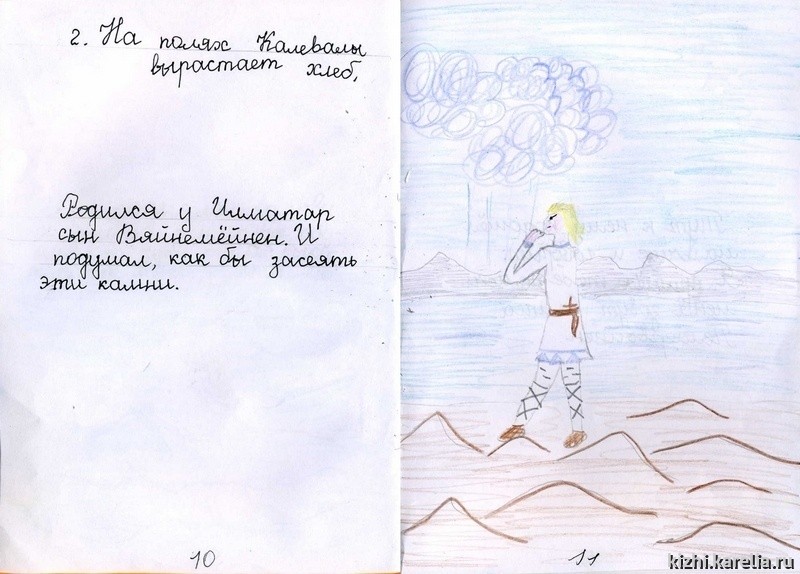 2. На полях Калевалы
вырастает хлеб.
Родился у Илматар
сын Вяйнемёйнен. И
подумал, как бы засеять
эти камни.
10
11
kizhi.karelia.ru